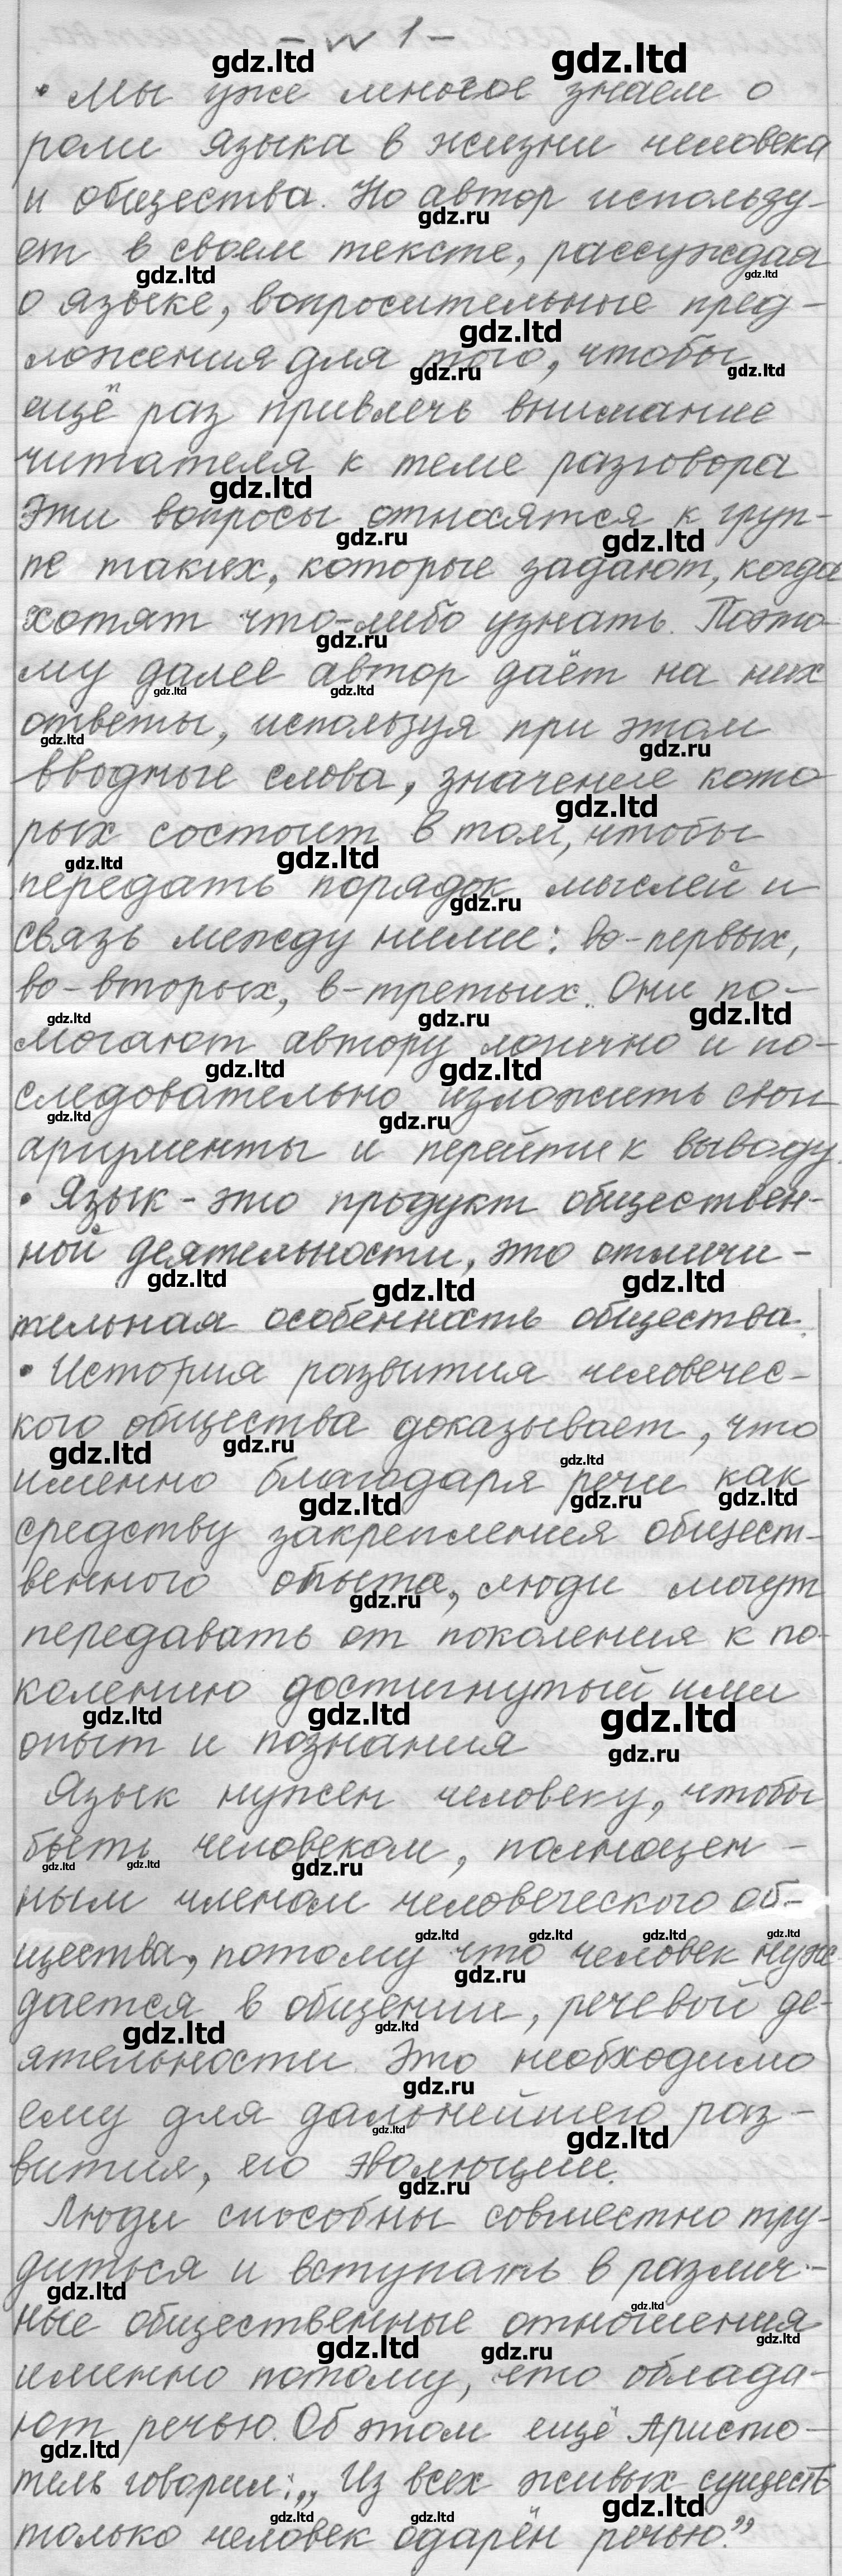 - № 1 -
• Мы уже многое знаем о
роли языка в жизни человека
и общества. Но автор использу-
ет в своем тексте, рассуждая
о языке, вопросительные пред-
ложения для того, чтобы
ещё раз привлечь внимание
читателя к теме разговора
Эти вопросы относятся к груп-
пе таких, которые задают, когда
хотят что-либо узнать. Поэто-
му далее автор даёт на них
ответы, используя при этом
вводные слова, значение кото
рых состоит в том, чтобы
передать порядок мыслей и
связь между ними: во-первых,
во-вторых, в-третьих. Они по-
могают автору логично и по-
следовательно изложить свои
аргументы и перейти к выводу.
• Язык - это продукт обществен-
ной деятельности, это отличи-
тельная особенность общества.
• История развития человечес-
кого общества доказывает, что
именно благодаря речи как
средству закрепления общест-
венного опыта, люди могут
передавать от поколения к по-
колению достигнутый ими
опыт и познания
Язык нужен человеку, чтобы
быть человеком, полноцен-
ным членом человеческого об-
щества, потому что человек нуж-
дается в общении, речевой де-
ятельности. Это необходимо
ему для дальнейшего раз-
вития, его эволюции.
Люди способны совместно тру-
диться и вступать в различ-
ные общественные отношения
именно потому, что облада-
ют речью. Об этом ещё Аристо-
тель говорил: „Из всех живых существ
только человек одарён речью.”
gdz.ltd
gdz.ru